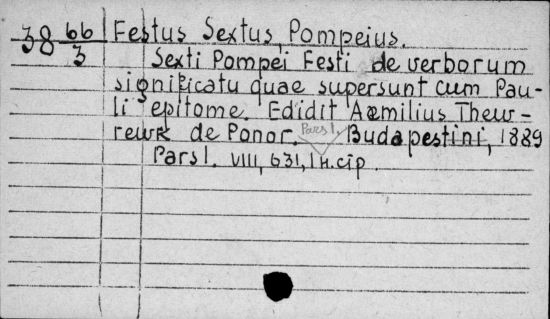 38 66/3 Festus Sextus Pompeius.
Sexti Pompei Festi de verborum
significatu quae supersunt cum Pau-
li epitome. Edidit Aemilius Thew-
rewk de Ponor. Pars I. Budapestini, 1889
Pars I. VIII, 631, 1 H. cip.